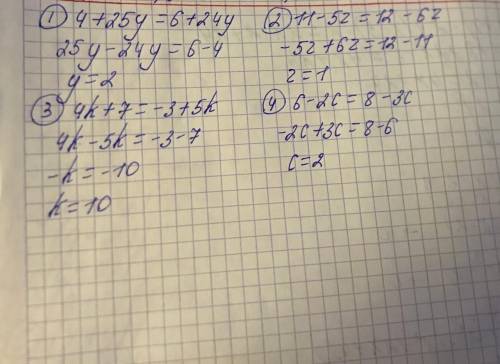 ① 4+25y=6+24y
25y-24y=6-4
y=2
② 11-5z=12-6z
-5z+6z=12-11
z=1
③ 4k+7=-3+5k
4k-5k=-3-7
-k=-10
k=10
④ 6-2c=8-3c
-2c+3c=8-6
c=2